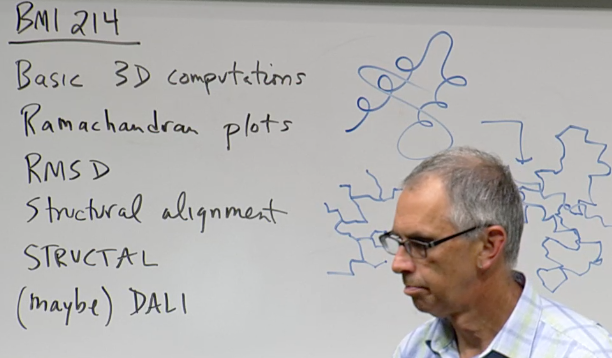 BMI 214
Basic 3D computations
Ramachandran plots
RMSD
Structural alignment
STRUCTAL
(maybe) DALI